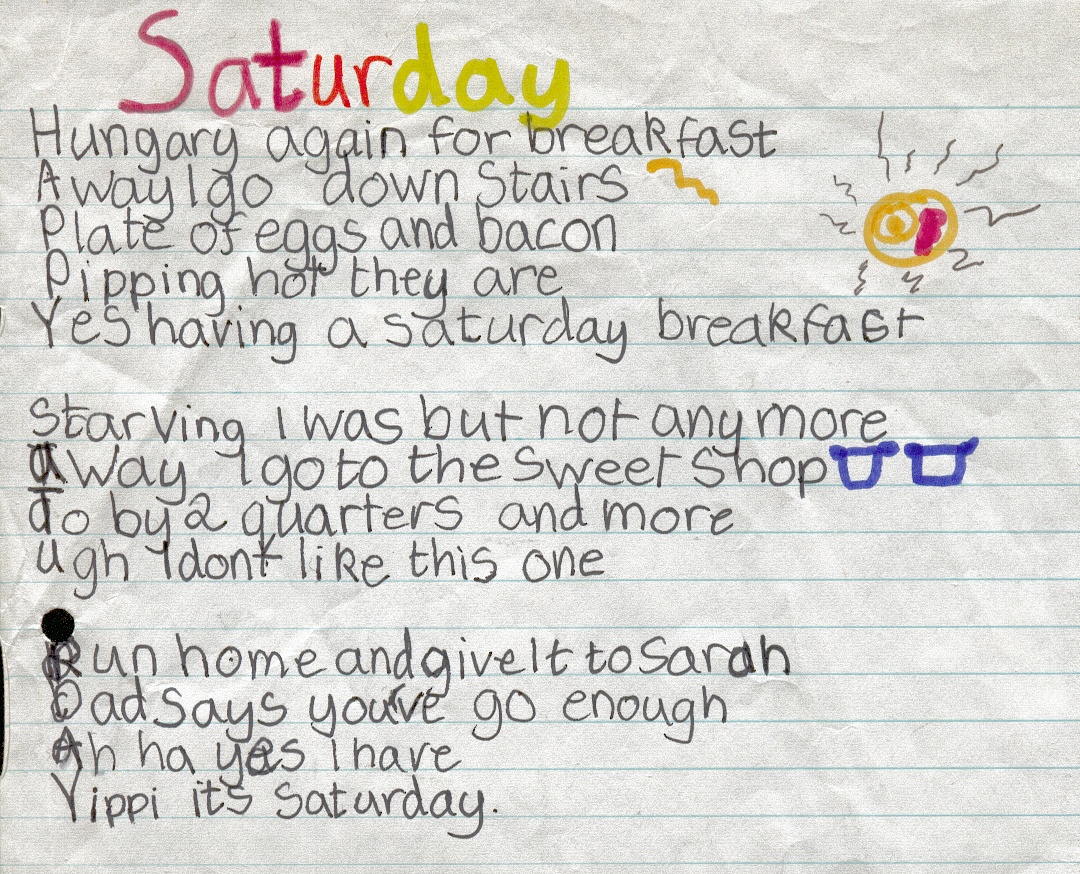 Saturday
Hungary again for breakfast
Away I go down Stairs
Plate of eggs and bacon
Pipping hot they are
Yes having a saturday breakfast
Starving I was but not any more
away I go to the sweet shop
To by 2 quarters and more
ugh I dont like this one
Run home and give It to Sarah
Dad says you've go enough
Ah ha yes I have
Yippi it's Saturday.